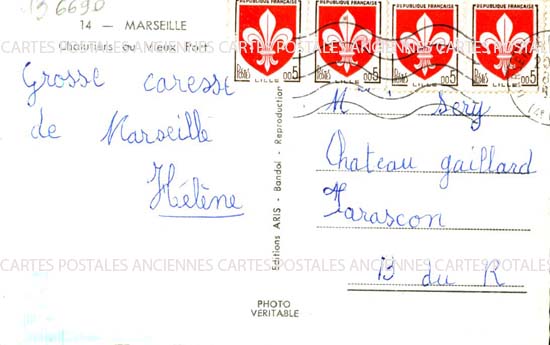 13 6690
14 — MARSEILLE
Chalutiers au Vieux Port
Grosse caresse
de Marseille
Hélène
Editions ARIS - Bandol - Reproduction
PHOTO
VERITABLE
REPUBLIQUE FRANÇAISE
POSTES 0,05
LILLE
REPUBLIQUE FRANÇAISE
POSTES 0,05
LILLE
REPUBLIQUE FRANÇAISE
POSTES 0,05
LILLE
REPUBLIQUE FRANÇAISE
POSTES 0,05
LILLE
Sery
Chateau gaillard
Tarascon
B du R
CARTES POSTALES ANCIENNES CARTES POSTALES ANCIENNES
CARTES POSTALES ANCIENNES CARTES POSTALES ANCIENNES